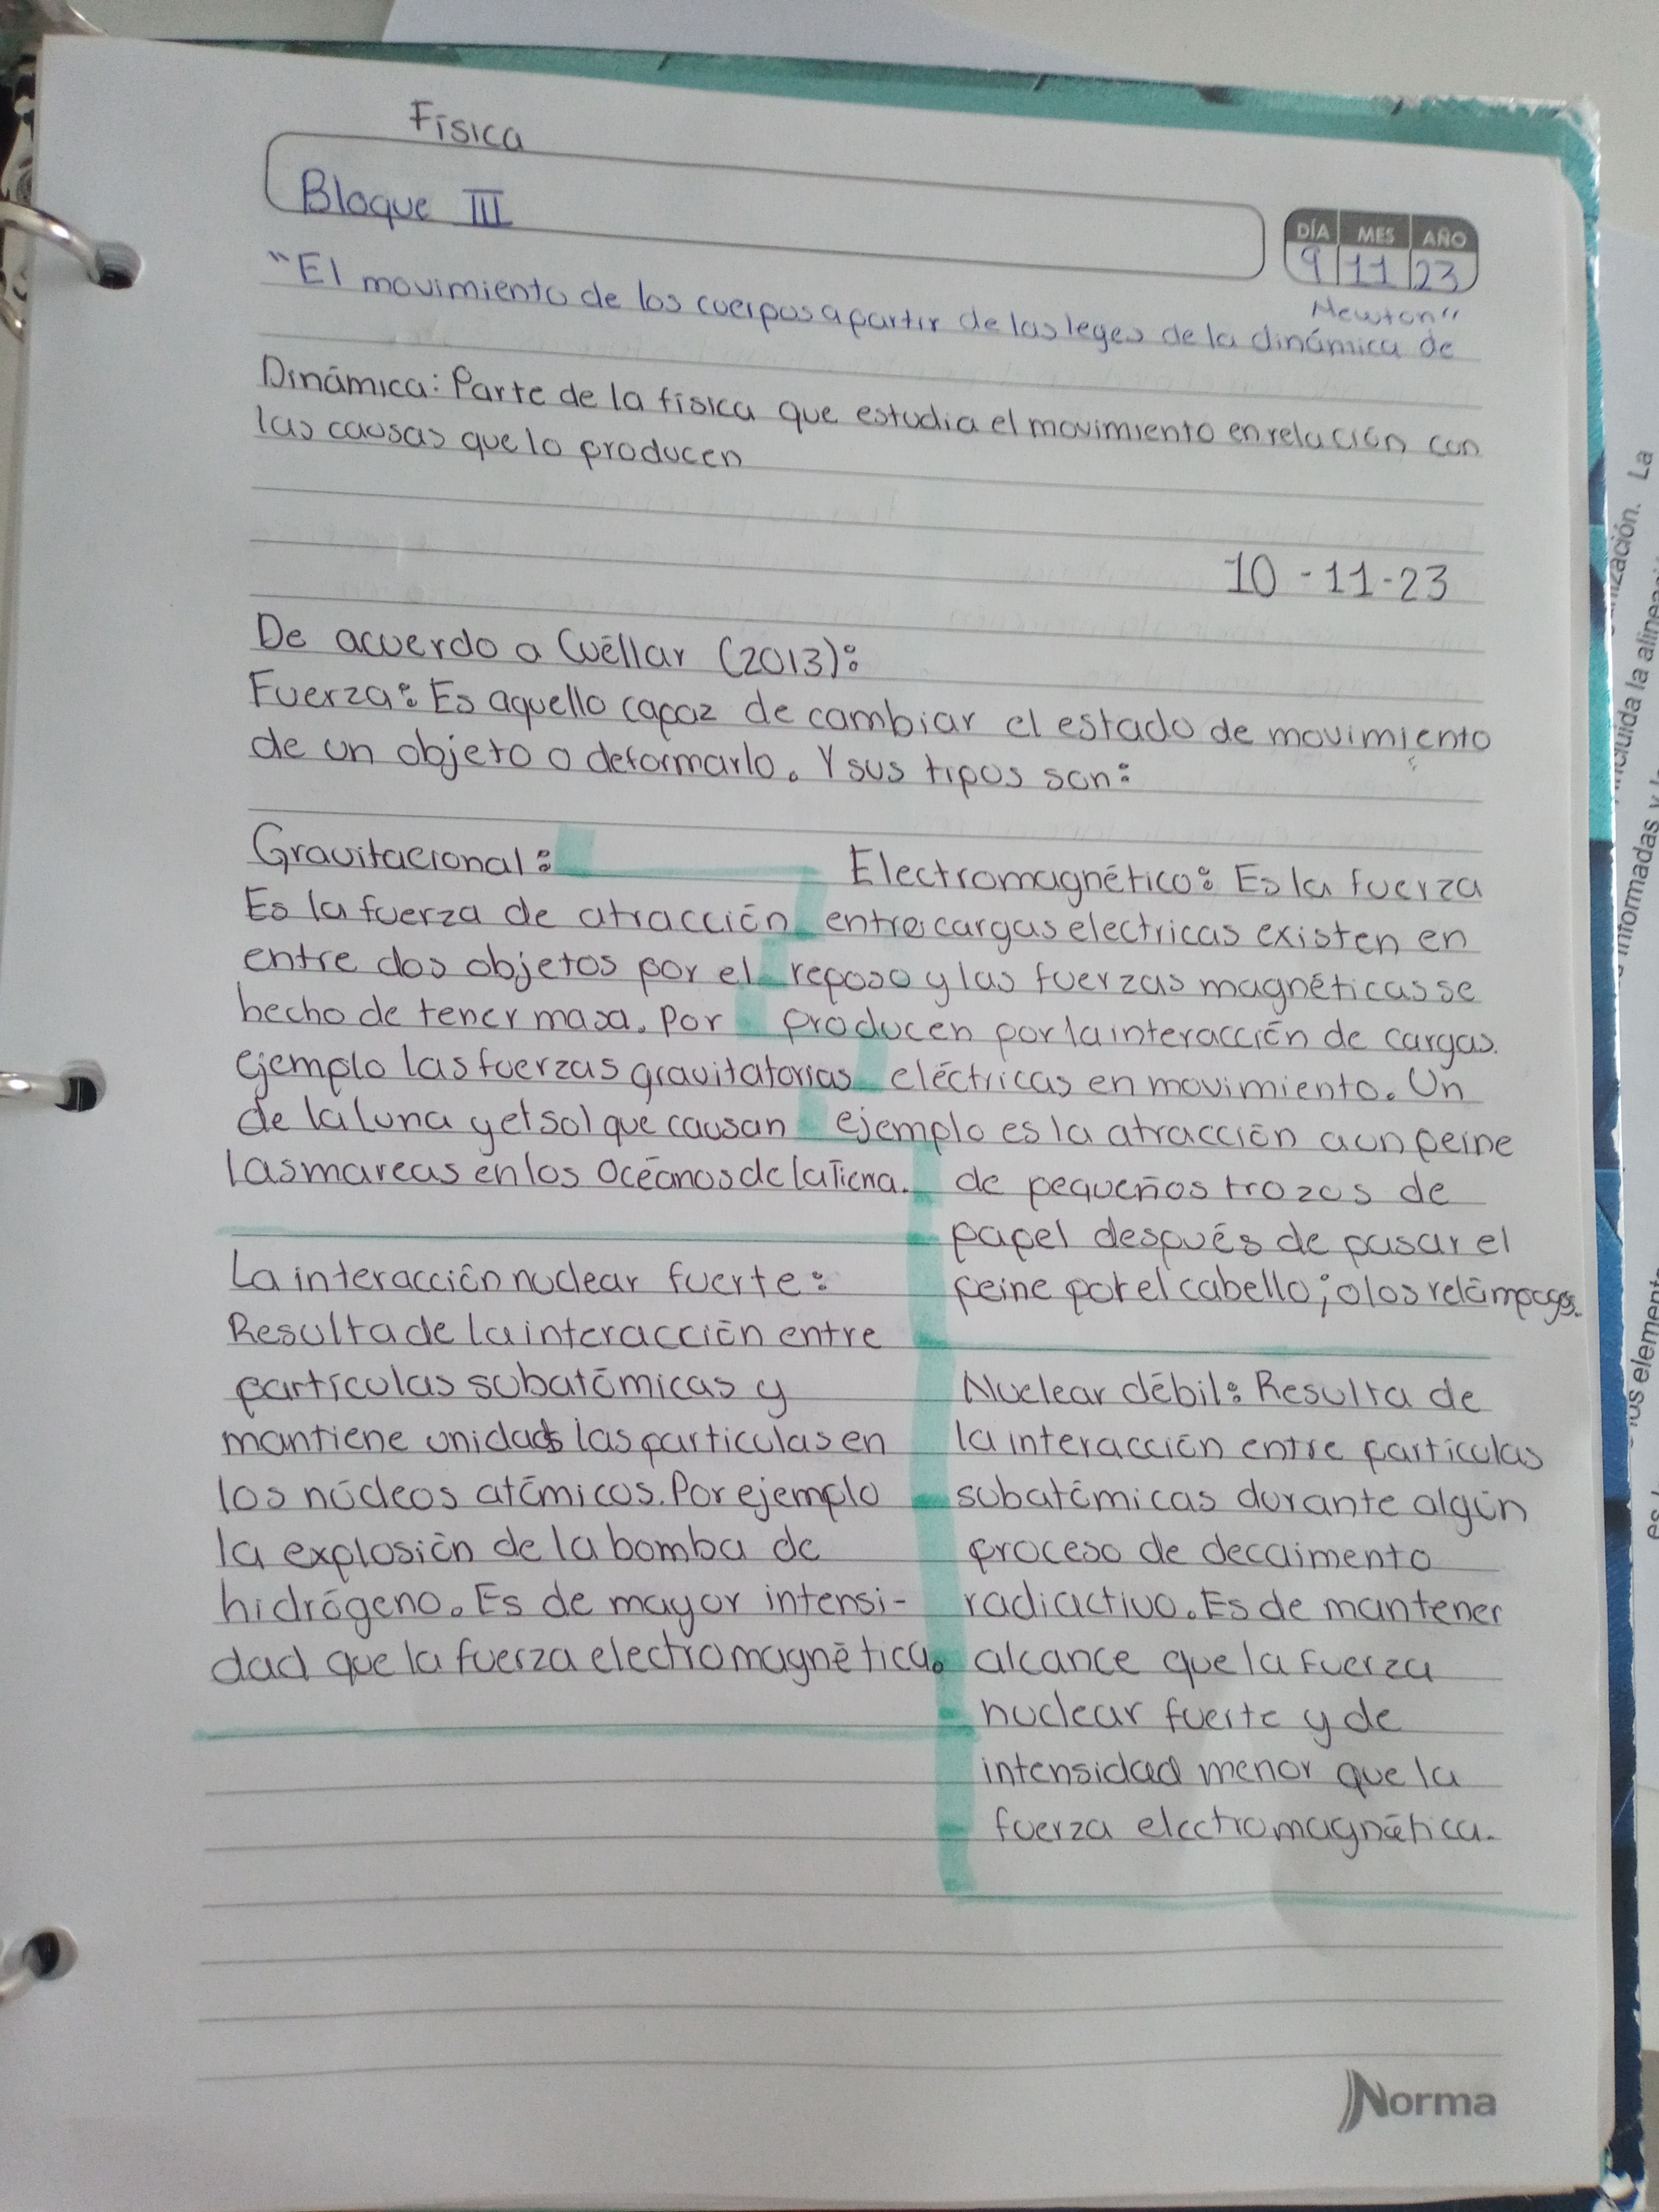 Física
Bloque III
DÍA MES AÑO
9 11 23
"El movimiento de los cuerpos a partir de las leyes de la dinámica de
Newton"
Dinámica: Parte de la física que estudia el movimiento en relación con
las causas que lo producen
10-11-23
De acuerdo a Cuéllar (2013):
Fuerza: Es aquello capaz de cambiar el estado de movimiento
de un objeto o deformarlo. Y sus tipos son:
Gravitacional:
Es la fuerza de atracción
entre dos objetos por el
hecho de tener masa. Por
ejemplo las fuerzas gravitatorias
de la luna y el sol que causan
las mareas en los océanos de la Tierra.
Electromagnético: Es la fuerza
entre cargas electricas existen en
reposo y las fuerzas magnéticas se
producen por la interacción de cargas
eléctricas en movimiento. Un
ejemplo es la atracción a un peine
de pequeños trozos de
papel después de pasar el
peine por el cabello; o los relámpagos.
La interacción nuclear fuerte:
Resulta de la interacción entre
partículas subatómicas y
mantiene unidads las particulas en
los núcleos atómicos. Por ejemplo
la explosión de la bomba de
hidrógeno. Es de mayor intensi-
dad que la fuerza electromagnética.
Nuclear débil: Resulta de
la interacción entre partículas
subatómicas durante algún
proceso de decaimento
radiactivo. Es de mantener
alcance que la fuerza
nuclear fuerte y de
intensidad menor que la
fuerza electromagnética.
Norma
nización. La
incluida la alineac
informadas y l
los element